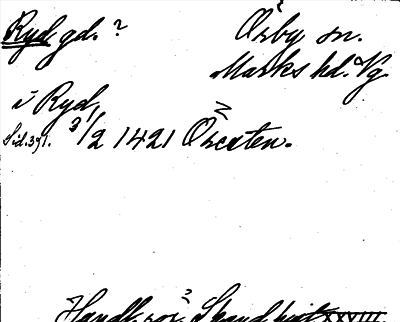 Ryd gd. ? Örby sn.
Marks hd. Vg.
i Ryd,
Sid. 391. 3/2 1421 Örexten.
Handl. rör. Skand. hist. XXVIII.